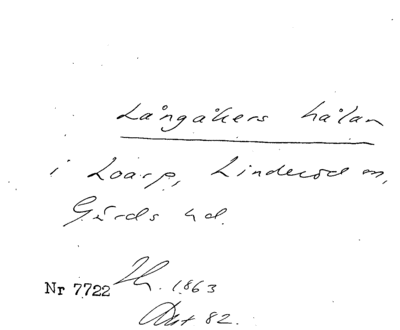 Långåkers hålan
i Loarp, Linderöd sn,
Gärds hd.
Nr 7722 1863
82.